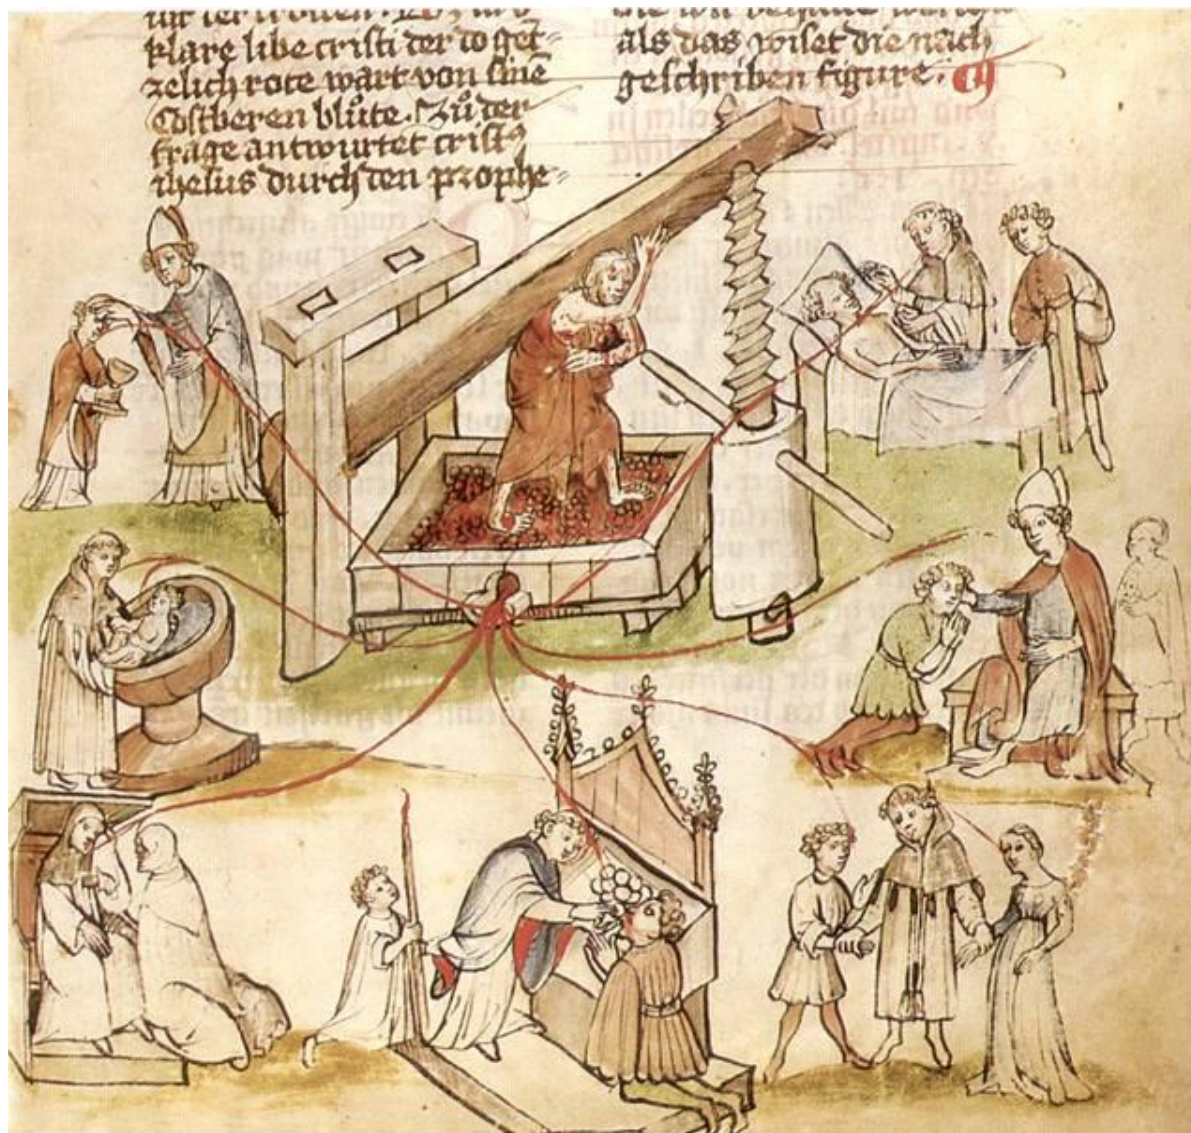 klare libe cristi der do get=
zelich rote wart von sinē
Costberen blůte. Zů der
frage antwurtet cristꝰ
ihesus durch den prophe=
als das wiset die nach
geschriben figure.